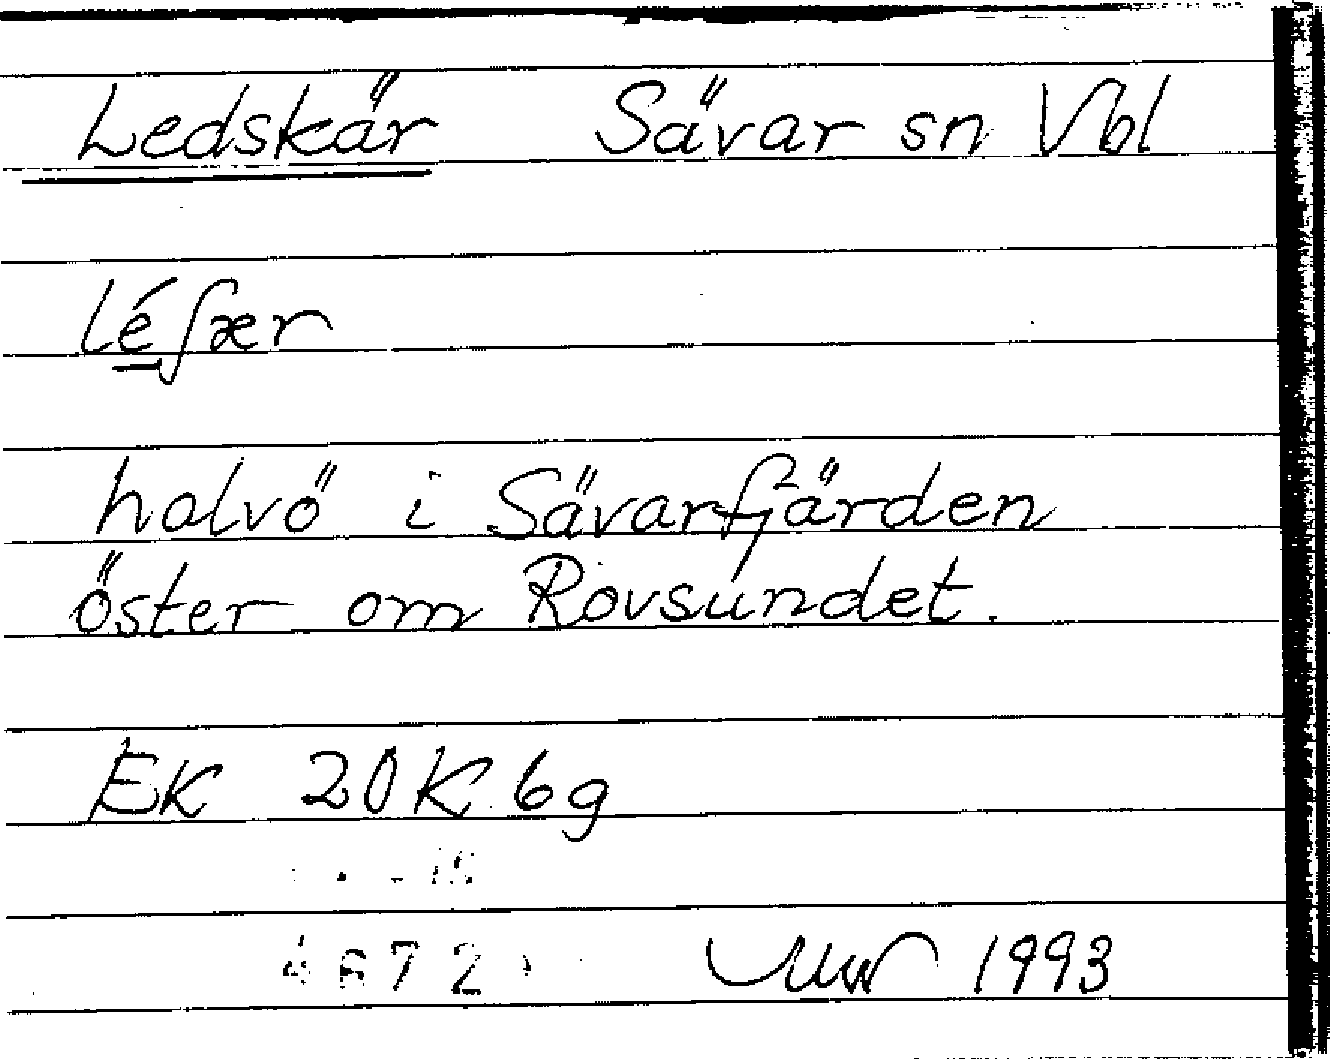 Ledskär Sävar sn Vbl
lé̠ʃær
halvö i Sävarfjärden
öster om Rovsundet.
EK 20K 6g
4672
1993